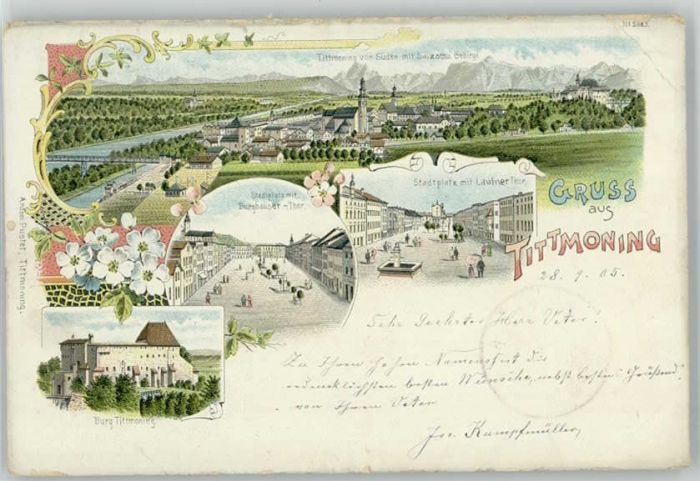 Nr 5883.
Tittmoning von Süden mit Salzachtal Gebirge
Stadtplatz mit Laufner Thor.
Stadtplatz mit
Burghauser-Thor.
GRUSS
aus
TITTMONING
Anton Pustet, Tittmoning.
28. 9. 05.
Sehr Geehrter Herr Vetter!
Zu Ihrem hohen Namensfest die
besten Wünsche, nebst besten Grüßend
von Ihrem Vetter
Jos. Kumpfmüller
Burg Tittmoning